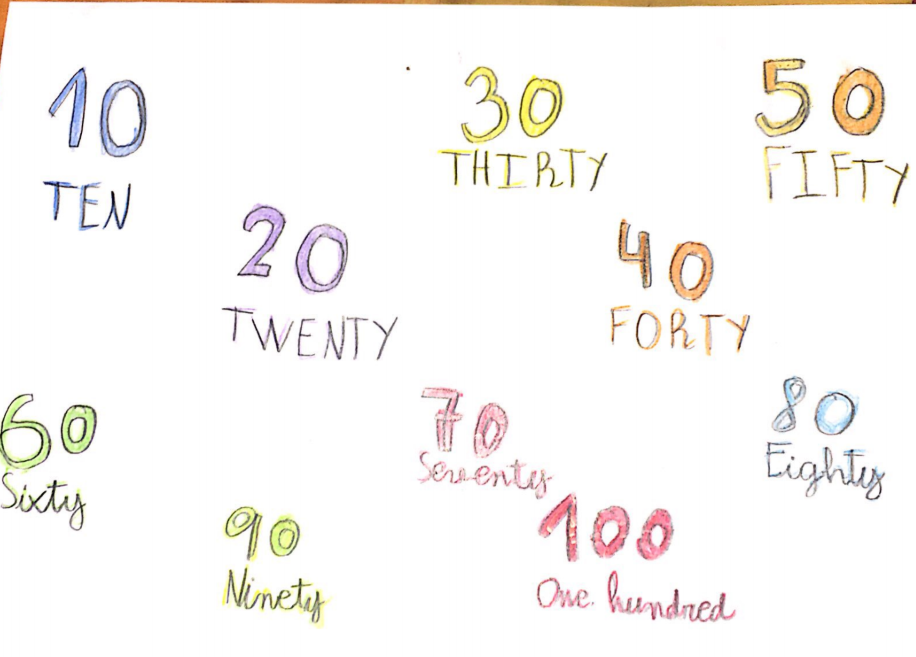 10
TEN
20
TWENTY
30
THIRTY
40
FORTY
50
FIFTY
60
Sixty
70
Seventy
80
Eighty
90
Ninety
100
One hundred